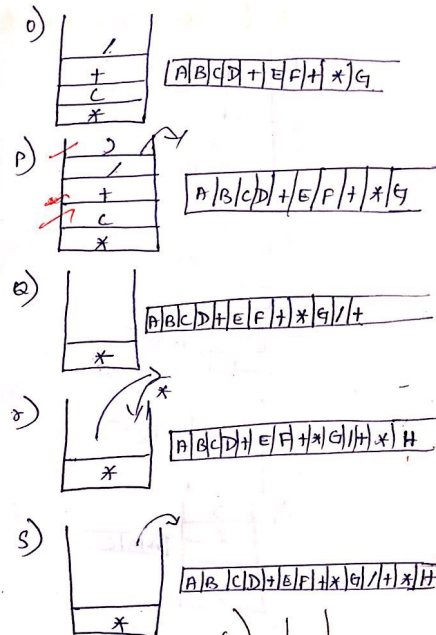 O)
/
+
C
*
A B C D + E F + * G
P)
)
/
+
C
*
A B C D + E F + * G
Q)
*
A B C D + E F + * G / +
r)
*
*
A B C D + E F + * G / + * H
S)
*
A B C D + E F + * G / + * H